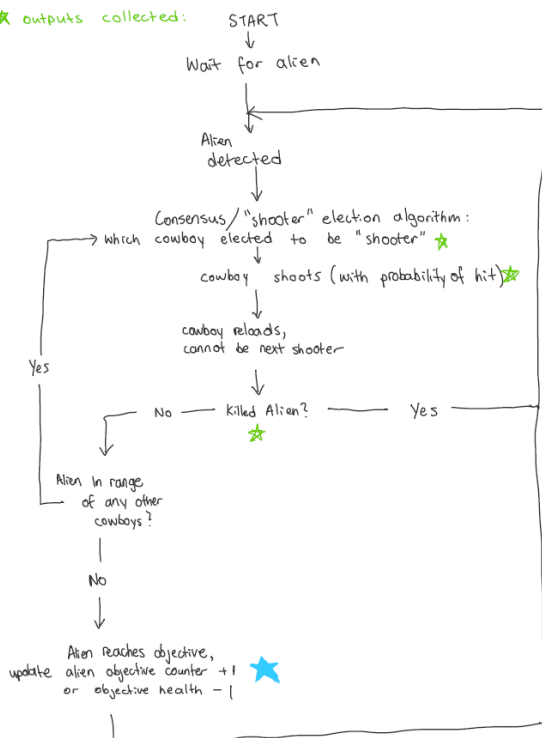 outputs collected:
START
Wait for alien
Alien
detected
Consensus/"shooter" election algorithm:
which cowboy elected to be "shooter"
cowboy shoots (with probability of hit)
cowboy reloads,
cannot be next shooter
Yes
No
Killed Alien?
Yes
Alien in range
of any other
cowboys?
No
Alien reaches objective,
update alien objective counter +1
or objective health -1